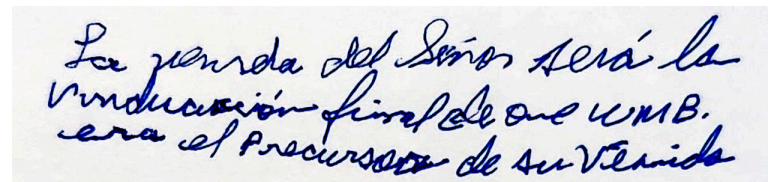 La venida del Señor será la
vindicación final de que WMB.
era el Precursor de su Venida